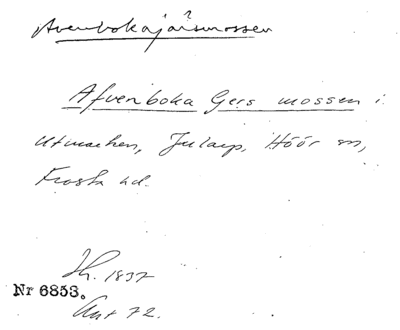 Avenbokajärsmossen
Afvenboka Gers mossen i
utmarken, Jularp, Höör sn,
Frosta hd.
1837
Nr 6853.
Akt 72.